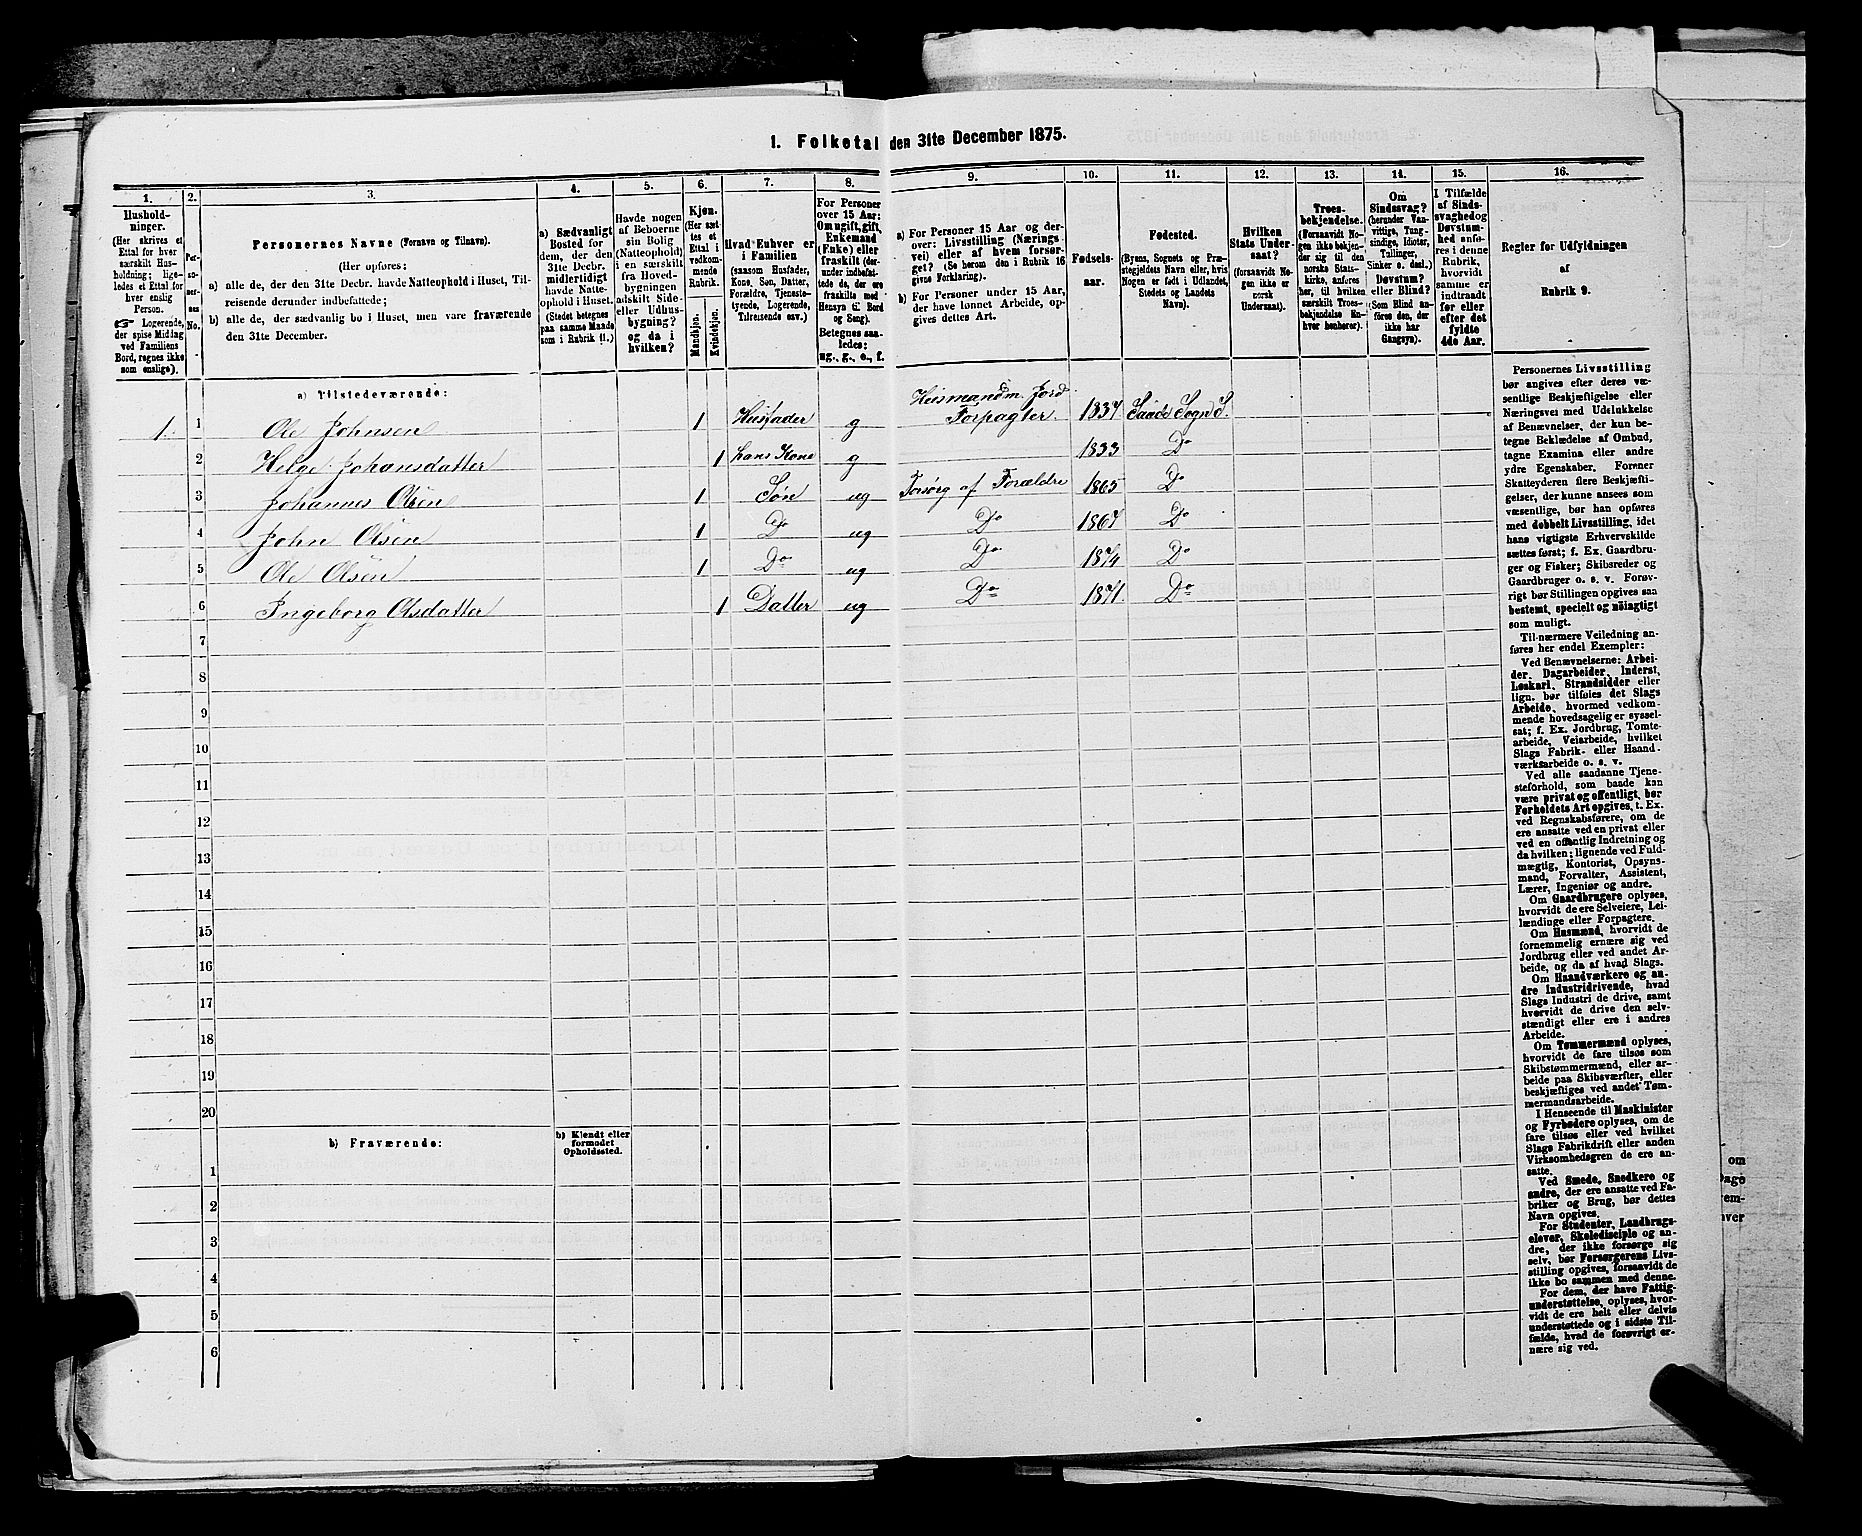 1. Folketal den 31te December 1875.
1.
Hushold-
ninger.
(Her skrives et
Ettal for hver
særskilt Hus-
holdning; lige-
ledes et Ettal for
hver enslig
Person.
☞ Logerende,
der spise Middag
ved Familiens
Bord, regnes ikke
som enslige).
2.
Per-
so-
ner-
nes
No.
3.
Personernes Navne (Fornavn og Tilnavn).
(Her opføres:
a) alle de, der den 31te Decbr. havde Natteophold i Huset, Til-
reisende derunder indbefattede;
b) alle de, der sædvanlig bo i Huset, men vare fraværende
den 31te December.
4.
a) Sædvanligt
Bosted for
dem, der den
31te Decbr.
midlertidigt
havde Natte-
ophold i Huset.
(Stedet betegnes
paa samme Maade
som i Rubrik 11.)
5.
Havde nogen
af Beboerne
sin Bolig
(Natteophold)
i en særskilt
fra Hoved-
bygningen
adskilt Side-
eller Udhus-
bygning?
og da i
hvilken?
6.
Kjøn.
(Her sæt-
tes et
Ettal i
vedkom-
mende
Rubrik.
Mandkjøn.
Kvindekjøn.
7.
Hvad Enhver er
i Familien
(saasom Husfader,
Kone, Søn, Datter,
Forældre, Tjeneste-
tyende, Logerende,
Tilreisende osv.)
8.
For Personer
over 15 Aar:
Om ugift, gift,
Enkemand
(Enke) eller
fraskilt (der-
under indbefat-
tede de, der ere
fraskilte med
Hensyn til Bord
og Seng).
Betegnes saa-
ledes:
ug., g., e., f.
9.
a) For Personer 15 Aar og der-
over: Livsstilling (Nærings-
vei) eller af hvem forsør-
get? (Se herom den i Rubrik 16
givne Forklaring).
b) For Personer under 15 Aar,
der have lønnet Arbeide, op-
gives dettes Art.
10.
Fødsels-
aar.
11.
Fødested.
(Byens, Sognets og Præ-
stegjeldets Navn eller, hvis
Nogen er født i Udlandet,
Stedets og Landets
Navn).
12.
Hvilken
Stats Under-
saat?
(forsaavidt No-
gen ikke er
norsk
Undersaat).
13.
Troes-
bekjendelse.
(Forsaavidt No-
gen ikke bekjen-
der sig til den
norske Stats-
kirke, anføres
her, til hvilken
særskilt Troes-
bekjendelse En-
hver henhører).
14.
Om
Sindssvag?
(herunder Van-
vittige, Tung-
sindige, Idioter,
Tullinger,
Sinker o. desl.)
Døvstum?
eller Blind?
(Som Blind an-
føres den, der
ikke har
Gangsyn).
15.
I Tilfælde
af Sinds-
svaghed og
Døvstum-
hed anfø-
res i denne
Rubrik,
hvorvidt
samme er
indtraadt
før eller
efter det
fyldte
4de Aar.
16.
Regler for Udfyldningen
af
Rubrik 9.
a) Tilstedeværende:
1 1 Ole Johnsen 1 Husfader g Husmand m. Jord Forpagter. 1837 Saude Sogn S.
2 Helge Johansdatter 1 hans Kone g 1833 Do
3 Johannes Olsen 1 Søn ug Forsørg af Forældre 1865 Do
4 John Olsen 1 Do ug Do 1867 Do
5 Ole Olsen 1 Do ug Do 1874 Do
6 Ingeborg Olsdatter 1 Datter ug Do 1871. Do
7
8
9
10
11
12
13
14
15
16
17
18
19
20
b) Fraværende:
b) Kjendt eller
formodet
Opholdssted.
1
2
3
4
5
6
Personernes Livsstilling
bør angives efter deres væ-
sentlige Beskjæftigelse eller
Næringsvei med Udelukkelse
af Benævnelser, der kun be-
tegne Beklædelse af Ombud,
tagne Examina eller andre
ydre Egenskaber. Forener
Skatteyderen flere Beskjæfti-
gelser, der kunne ansees som
væsentlige, bør han opføres
med dobbelt Livsstilling, idet
hans vigtigste Erhvervskilde
sættes først; f. Ex. Gaardbru-
ger og Fisker; Skibsreder og
Gaardbruger o. s. v. Forøv-
rigt bør Stillingen opgives saa
bestemt, specielt og nöiagtigt
som muligt.
Til nærmere Veiledning an-
føres her endel Exempler:
Ved Benævnelserne: Arbei-
der, Dagarbeider, Inderst,
Løskarl, Strandsidder eller
lign. bør tilføies det Slags
Arbeide, hvormed vedkom-
mende hovedsagelig er syssel-
sat; f. Ex. Jordbrug, Tomte-
arbeide, Veiarbeide, hvilket
Slags Fabrik- eller Haand-
værksarbeide o. s. v.
Ved alle saadanne Tjene-
steforhold, som baade kan
være privat og offentligt, bør
Forholdets Art opgives, t. Ex.
ved Regnskabsførere, om de
ere ansatte ved en privat eller
ved en offentlig Indretning og
da hvilken; lignende ved Fuld-
mægtig, Kontorist, Opsyns-
mand, Forvalter, Assistent,
Lærer, Ingeniør og andre.
Om Gaardbrugere oplyses,
hvorvidt de ere Selveiere, Lei-
lændinge eller Forpagtere.
Om Husmænd, hvorvidt de
fornemmelig ernære sig ved
Jordbrug eller ved andet Ar-
beide, og da af hvad Slags.
Om Haandværkere og an-
dre Industridrivende, hvad
Slags Industri de drive, samt
hvorvidt de drive den selv-
stændigt eller ere i andres
Arbeide.
Om Tømmermænd oplyses,
hvorvidt de fare tilsøs som
Skibstømmermænd, eller ar-
beide paa Skibsværfter, eller
beskjæftiges ved andet Tøm-
mermandsarbeide.
I Henseende til Maskinister
og Fyrbødere oplyses, om de
fare tilsøs eller ved hvilket
Slags Fabrikdrift eller anden
Virksomhedsgren de ere an-
satte.
Ved Smede, Snedkere og
andre, der ere ansatte ved Fa-
briker og Brug, bør dettes
Navn opgives.
For Studenter, Landbrugs-
elever, Skoledisciple og an-
dre, der ikke forsørge sig
selv, bør Forsørgerens Livs-
stilling opgives, forsaavidt de
ikke bo sammen med denne.
For dem, der have Fattig-
understøttelse, oplyses, hvor-
vidt de ere helt eller delvis
understøttede og i sidste Til-
fælde, hvad de forøvrigt er-
nære sig ved.